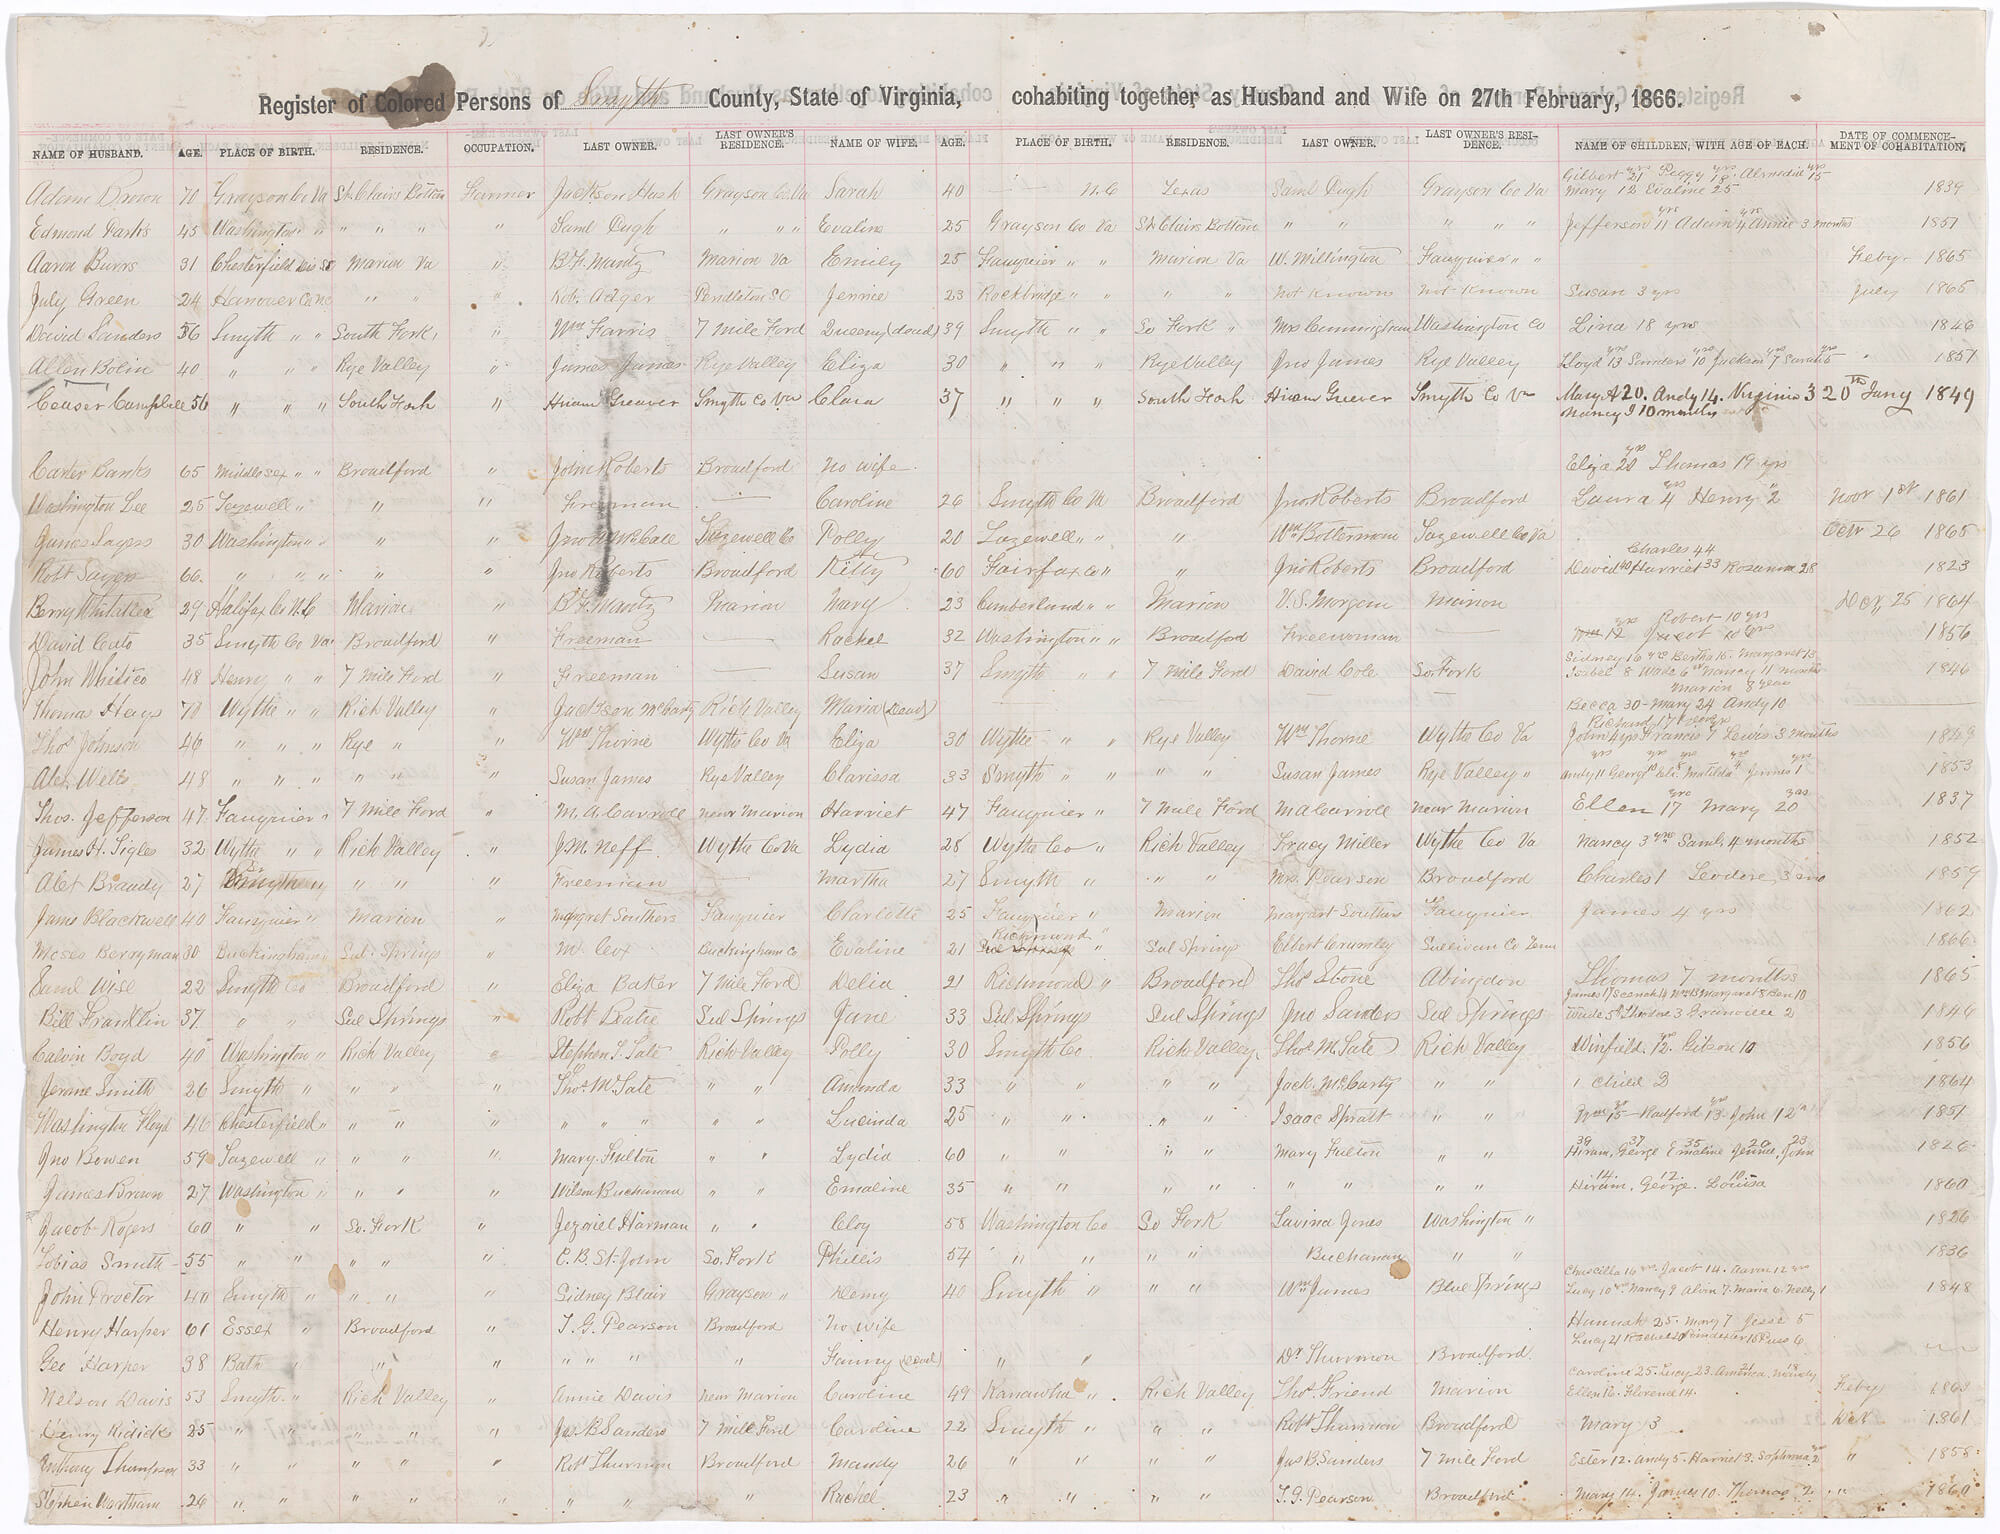 Register of Colored Persons of Smyth County, State of Virginia, cohabiting together as Husband and Wife on 27th February, 1866.
NAME OF HUSBAND. AGE. PLACE OF BIRTH. RESIDENCE. OCCUPATION. LAST OWNER. LAST OWNER'S RESIDENCE. NAME OF WIFE. AGE. PLACE OF BIRTH. RESIDENCE. LAST OWNER. LAST OWNER'S RESIDENCE. NAME OF CHILDREN, WITH AGE OF EACH. DATE OF COMMENCEMENT OF COHABITATION.
Gilbert 21 Peggy 18 15
Adam Brown 70 Grayson Co Va St. Clairs Bottom Farmer Jackson Hash Grayson Co. Va Sarah 40 — N.C Texas Saml Pugh Grayson Co Va Mary 12 Evaline 25 1839
Edmond Parks 45 Washington " " " " " Saml Pugh " " " Evaline 25 Grayson Co Va St Clairs Bottom " " " " " Jefferson 11 Adam 4 Annie 3 months 1851
Aaron Burrs 31 Chesterfield Marion Va " B. F. Mantz Marion Va Emily 25 Fauquier " " Marion Va W. Millington Fauquier " " Feby 1865
July Green 24 Hanover Co NC " " " Robt Adger Pendleton SC Jennie 23 Rockbridge " " " " Not Known Not Known Susan 3 yrs July 1865
David Sanders 56 Smyth " " South Fork, " Wm Farris 7 Mile Ford Queeny (dead) 39 Smyth " " So Fork " Mrs Cunningham Washington Co Lina 18 yrs 1846
Allen Bolin 40 " " " Rye Valley " James James Rye Valley Eliza 30 " " " Rye Valley Jno James Rye Valley Lloyd 13 Sanders 10 Jackson 7 Sarah 5 1851
Ceaser Campbell 56 " " " South Fork " Hiram Greaver Smyth Co Va Clara 37 " " " South Fork Hiram Greever Smyth Co Va Mary A 20. Andy 14. Virginia 3 20th Jany 1849
Nancy J 10 months
Carter Banks 65 Middlesex " " Broadford " John Roberts Broadford No wife Eliza 20 Thomas 19 yrs
Washington Lee 25 Tazewell " " " Freeman — Caroline 26 Smyth Co Va Broadford Jno. Roberts Broadford Laura 4 Henry 2 Novr 1st 1861
James Sayers 30 Washington " " " " Jno McCall Tazewell Co Polly 20 Tazewell " " " Wm Botterman Tazewell Co Va Octr 26 1865
Charles 44
Robt Sayers 66 " " " " " Jno Roberts Broadford Kitty 60 Fairfax Co " " Jno Roberts Broadford David 40 Harriet 33 Rosanna 28 1823
Berry 29 Halifax Co N.C Marion " B. F. Mantz Marion Mary 23 Cumberland " " Marion V. S. Morgan Marion Dec 25 1864
Robert 10 yrs
David Coats 35 Smyth Co Va Broadford " Freeman — Rachel 32 Washington " " Broadford Freewoman — Wm 12 Jacob 6 yrs 1856
Sidney 16 Bertha 15 Margaret 13
John Whitico 48 Henry " " 7 Mile Ford " Freeman — Susan 37 Smyth " " 7 Mile Ford David Cole So. Fork Isabel 8 Wade 6 Nancy 11 months 1846
Marion 8 years
Thomas Hays 70 Wythe " " Rich Valley " Jackson McCarty Rich Valley Maria (Dead) — — — — Becca 30 - Mary 24 Andy 10
Richard 17
Thos Johnson 46 " " " Rye " " Wm Thorne Wythe Co Va Eliza 30 Wythe " " Rye Valley Wm Thorne Wythe Co Va John Francis 7 Lewis 3 months 1849
Alex. Wells 48 " " " " " " Susan James Rye Valley Clarissa 33 Smyth " " " " Susan James Rye Valley " Andy 11 George 10 Eli 8 Matilda 4 James 1 1853
Thos. Jefferson 47 Fauquier " 7 Mile Ford " M. A. Carroll near Marion Harriet 47 Fauquier " 7 Mile Ford M A Carroll near Marion Ellen 17 Mary 20 1837
James H. Sigles 32 Wythe " " Rich Valley " J. M. Neff Wythe Co Va Lydia 28 Wythe Co " Rich Valley Tracy Miller Wythe Co Va Nancy 3 yrs Saml. 4 months 1852
Alex Brandy 27 Smyth " " " " Freeman — Martha 27 Smyth " " " Mrs. Pearson Broadford Charles 1 Leodore 3 mo 1859
James Blackwell 40 Fauquier " Marion " Margret Southers Fauquier Charlotte 25 Fauquier " Marion Margart Southers Fauquier James 4 yrs 1862
Richmond "
Moses Berryman 30 Buckingham " Sul. Springs " M. Cox Buckingham Co Evaline 21 Sul Springs Elbert Crumley Sullivan Co Tenn 1866
Saml Wise 22 Smyth Co Broadford " Eliza Baker 7 Mile Ford Delia 21 Richmond " Broadford Thos Stone Abingdon Thomas 7 months 1865
James 17 14 Wm 13 Margaret 8 Ben 10
Bill Franklin 37 " " Sul Springs " Robt Beatie Sul Springs Jane 33 Sul Springs Sul Springs Jno Sanders Sul Springs Wade 5 3 Granville 2 1846
Calvin Boyd 40 Washington " Rich Valley " Stephen T. Tate Rich Valley Polly 30 Smyth Co. Rich Valley Thos M. Tate Rich Valley Winfield. 12. Gibson 10 1856
Jerome Smith 26 Smyth " " " " Thos M. Tate " " Amanda 33 " " " " Jack. McCarty " " 1 Child 2 1864
Washington Floyd 46 Chesterfield " " " " " " " " " Lucinda 25 " " " " Isaac Spratt " " Wm 15 - Radford 13 - John 12 1851
39 37 35 20 23
Jno Bowen 59 Tazewell " " " " Mary Fulton " " Lydia 60 " " " " Mary Fulton " " Hiram, George Emaline Jennie, John 1826
14 12 10
James Brown 27 Washington " " " " Wilson Buchanan " " Emaline 35 " " " " " " " " Hiram. George. Louisa 1860
Jacob Rogers 60 " " So. Fork " Jezriel Harman " " Cloy 58 Washington Co So Fork Lavina Jones Washington " 1826
Tobias Smith 55 " " " " " C. B. St. John So. Fork Phillis 54 " " " " Buchanan " " 1836
Chriscilla 16 yrs. Jacob 14. Aaron 12 yrs
John Proctor 40 Smyth " " " " Sidney Blair Grayson " Demy 40 Smyth " " " Wm James Blue Springs Lucy 10 Nancy 9 Alvin 7 Maria 6 Nelly 1 1848
Hannah 25. Mary 7 Jesse 5
Henry Harper 61 Essex " Broadford " T. G. Pearson Broadford No wife
Lucy 21 Rachel 20 Poindexter 15 Puss 6
Geo Harper 38 Bath " " " " " " " Fanny (Dead) " " Dr Thurmon Broadford
Caroline 25. Lucy 23. America 21 Mandy 18
Nelson Davis 53 Smyth " Rich Valley " Annie Davis near Marion Caroline 49 Kanawha " Rich Valley Thos Friend Marion Ellen 16. Florence 14. Feby 1863
Henry Ridick 25 " " " " " Jas. B Sanders 7 Mile Ford Caroline 22 Smyth " " " Robt Thurmon Broadford Mary 3 Dec 1861
Anthony Thompson 33 " " " " " Robt Thurmon Broadford Mandy 26 " " " " Jas B. Sanders 7 Mile Ford Ester 12. Andy 5. Harriet 3. Sophronia 2 " 1858
Stephen Wortham 26 " " " " " " " " Rachel 23 " " " " T. G. Pearson Broadford Mary 14. James 10. Thomas 2 " " 1860